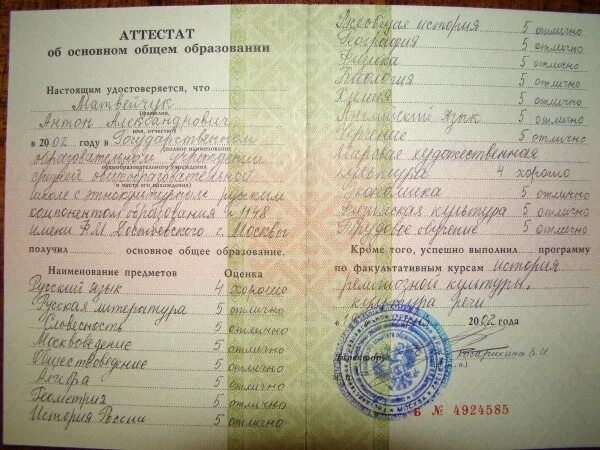 АТТЕСТАТ
об основном общем образовании
Настоящим удостоверяется, что
Матвейчук
(фамилия,
Антон Александрович
имя, отчество)
в 2002 году в Государственном
(полное наименование
образовательном учреждении
образовательного учреждения
средней общеобразовательной
и места его нахождения)
школе с этнокультурным русским
компонентом образования № 1148
имени Ф.М. Достоевского г. Москвы
получил основное общее образование.
Наименование предметов Оценка
Русский язык 4 хорошо
Русская литература 5 отлично
Словесность 5 отлично
Москвоведение 5 отлично
Обществоведение 5 отлично
Алгебра 5 отлично
Геометрия 5 отлично
История России 5 отлично
Всеобщая история 5 отлично
География 5 отлично
Физика 5 отлично
Биология 5 отлично
Химия 5 отлично
Английский язык 5 отлично
Черчение 5 отлично
Мировая художественная
культура 4 хорошо
Экономика 5 отлично
Физическая культура 5 отлично
Трудовое обучение 5 отлично
Кроме того, успешно выполнил программу
по факультативным курсам история
религиозной культуры,
культура речи
2002 года
Директор
Б № 4924585